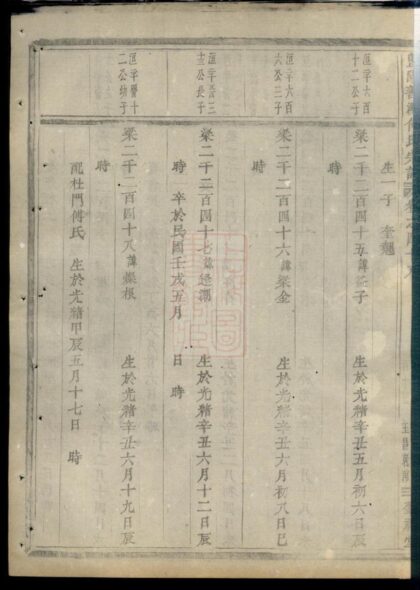 生一子 奎魁
滙字六百
十二公子
梁二千二百四十五諱益子 生於光緒辛丑五月初六日辰
時
滙字六百
六公三子
梁二千二百四十六諱梁金 生於光緒辛丑六月初八日巳
時
滙字晉三
十三公長子
梁二千二百四十七諱 生於光緒辛丑六月十二日辰
時 卒於民國壬戌五月 日 時
滙字晉十
二公幼子
梁二千二百四十八諱燦根 生於光緒辛丑六月十九日辰
時
配杜門傅氏 生於光緒甲辰五月十七日 時